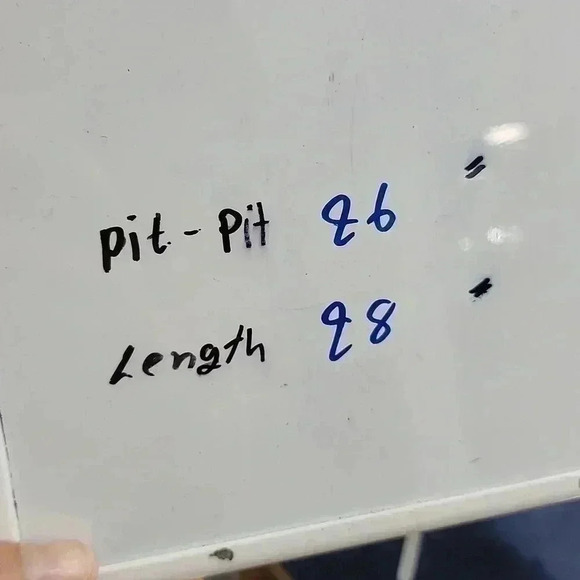 Pit - Pit 26 "
Length 28 "